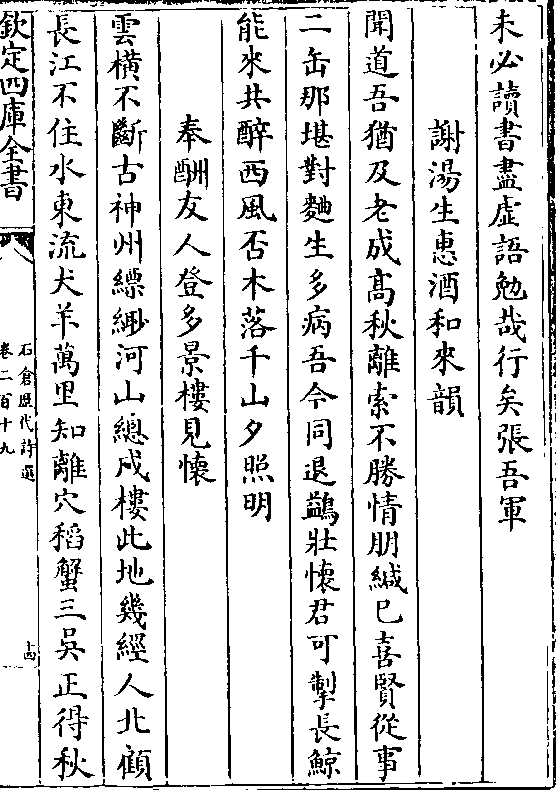 未必讀書盡虛語勉哉行矣張吾軍
謝湯生惠酒和來韻
聞道吾猶及老成髙秋離索不勝情朋緘已喜賢從事
二缶那堪對麯生多病吾今同退鷁壯懷君可掣長鯨
能來共醉西風否木落千山夕照明
奉酬友人登多景樓見懷
雲橫不斷古神州縹緲河山總戍樓此地幾經人北顧
長江不住水東流犬羊萬里知離穴稻蟹三吳正得秋
欽定四庫全書
石倉歴代詩選
卷二百十九
十四